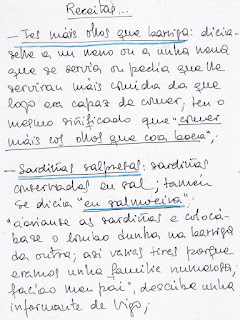 Receitas...
— Tes máis ollos que barriga: dicía-
selle a un neno ou a unha nena
que se servía ou pedía que lle
serviran máis comida da que
logo era capaz de comer; ten o
mesmo significado que "comer
máis cos ollos que coa boca";
— Sardiñas salpresas: sardiñas
conservadas en sal; tamén
se dicía "en salmoeira";
as sardiñas e colocá-
base o lombo dunha na barriga
da outra; así varias tires porque
eramos unha familia numerosa,
facíao meu pai", describe unha
informante de Vigo;